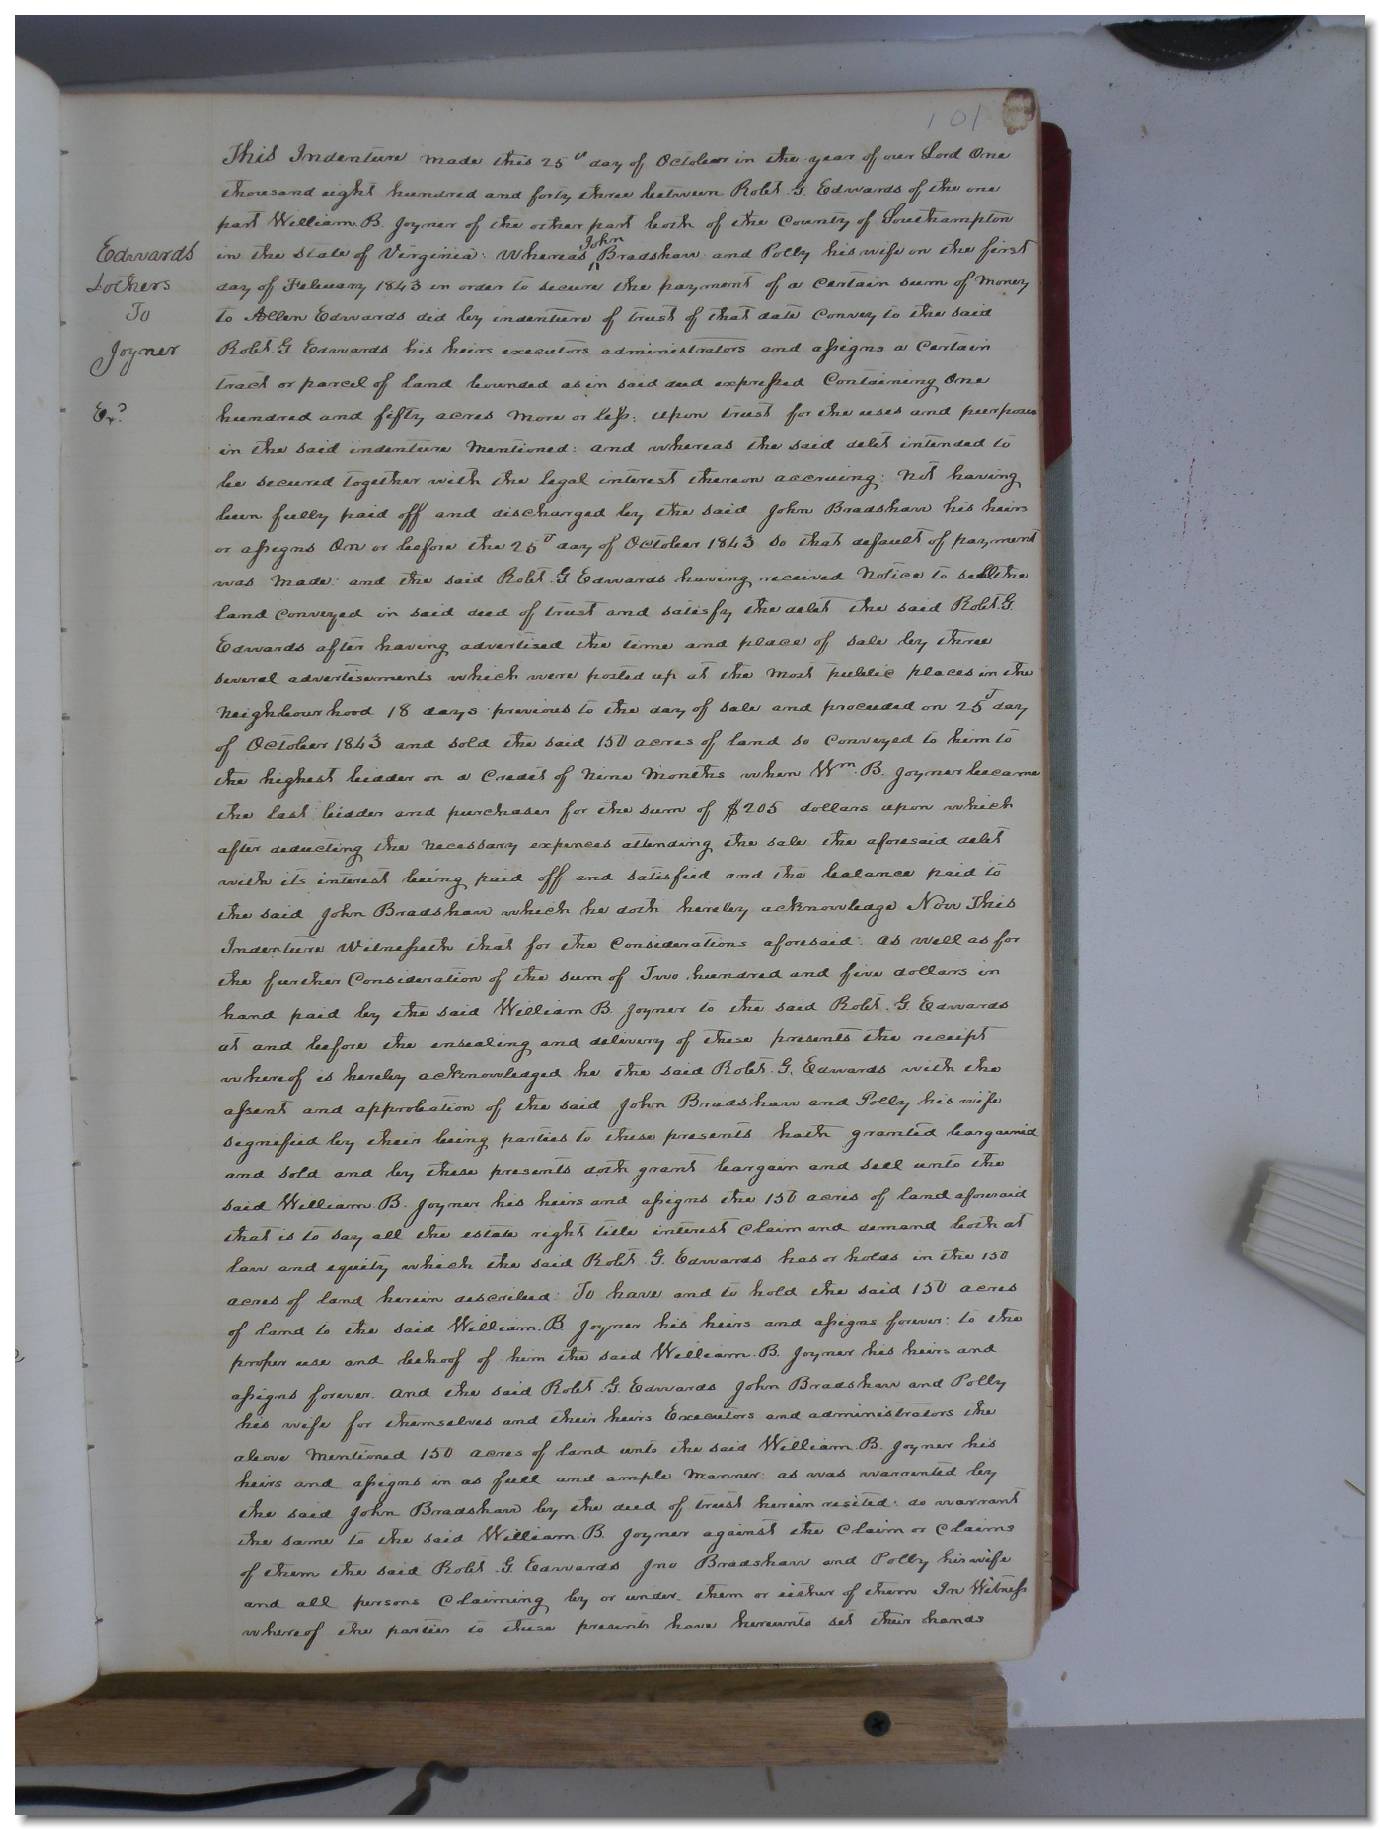 101
This Indenture made this 25th day of October in the year of our Lord One
thousand eight hundred and forty three between Robt. G. Edwards of the one
part William B. Joyner of the other part both of the County of Southampton
Edwards
&others
To
Joyner
Ex?
in the state of Virginia: Whereas John Bradshaw and Polly his wife on the first
day of February 1843 in order to secure the payment of a Certain sum of Money
to Allen Edwards did by indenture of trust of that date Convey to the said
Robt. G Edwards his heirs executors administrators and assigns a Certain
tract or parcel of land bounded as in said deed expressed Containing One
hundred and fifty acres More or less: upon trust for the uses and purposes
in the said indenture Mentioned: and whereas the said debt intended to
be secured together with the legal interest thereon accruing: Not having
been fully paid off and discharged by the said John Bradshaw his heirs
or assigns On or before the 25th day of October 1843 so that default of payment
was Made: and the said Robt. G Edwards having received Notice to sell the
land conveyed in said deed of trust and satisfy the debt the said Robt. G.
Edwards after having advertised the time and place of sale by three
several advertisements which were posted up at the Most public places in the
Neighbourhood 18 days previous to the day of sale and proceeded on 25th day
of October 1843 and sold the said 150 acres of land so Conveyed to him to
the highest bidder on a Credit of Nine Months when Wm. B. Joyner became
the last bidder and purchaser for the sum of $205 dollars upon which
after deducting the Necessary expences attending the sale the aforesaid debt
with its interest being paid off and satisfied and the balance paid to
the said John Bradshaw which he doth hereby acknowledge Now This
Indenture Witnesseth that for the Considerations aforesaid: as well as for
the further Consideration of the sum of Two hundred and five dollars in
hand paid by the said William B. Joyner to the said Robt. G. Edwards
at and before the ensealing and delivery of these presents the receipt
whereof is hereby acknowledged he the said Robt. G. Edwards with the
assent and approbation of the said John Bradshaw and Polly his wife
segnified by their being parties to these presents hath granted bargained
and sold and by these presents doth grant bargain and sell unto the
said William B. Joyner his heirs and assigns the 150 acres of land aforesaid
that is to say all the estate right title interest Claim and demand both at
law and equity which the said Robt. G. Edwards has or holds in the 150
acres of land herein described: To have and to hold the said 150 acres
of land to the said William B Joyner his heirs and assigns forever: to the
proper use and behoof of him the said William B. Joyner his heirs and
assigns forever. And the said Robt. G. Edwards John Bradshaw and Polly
his wife for themselves and their heirs Executors and administrators the
above Mentioned 150 acres of land unto the said William B. Joyner his
heirs and assigns in as full and ample Manner: as was warrented by
the said John Bradshaw by the deed of trust herein resited: do warrant
the same to the said William B. Joyner against the Claim or Claims
of them the said Robt. G. Edwards Jno Bradshaw and Polly his wife
and all persons Claiming by or under them or either of them In Witness
whereof the parties to these presents have hereunto set their hands